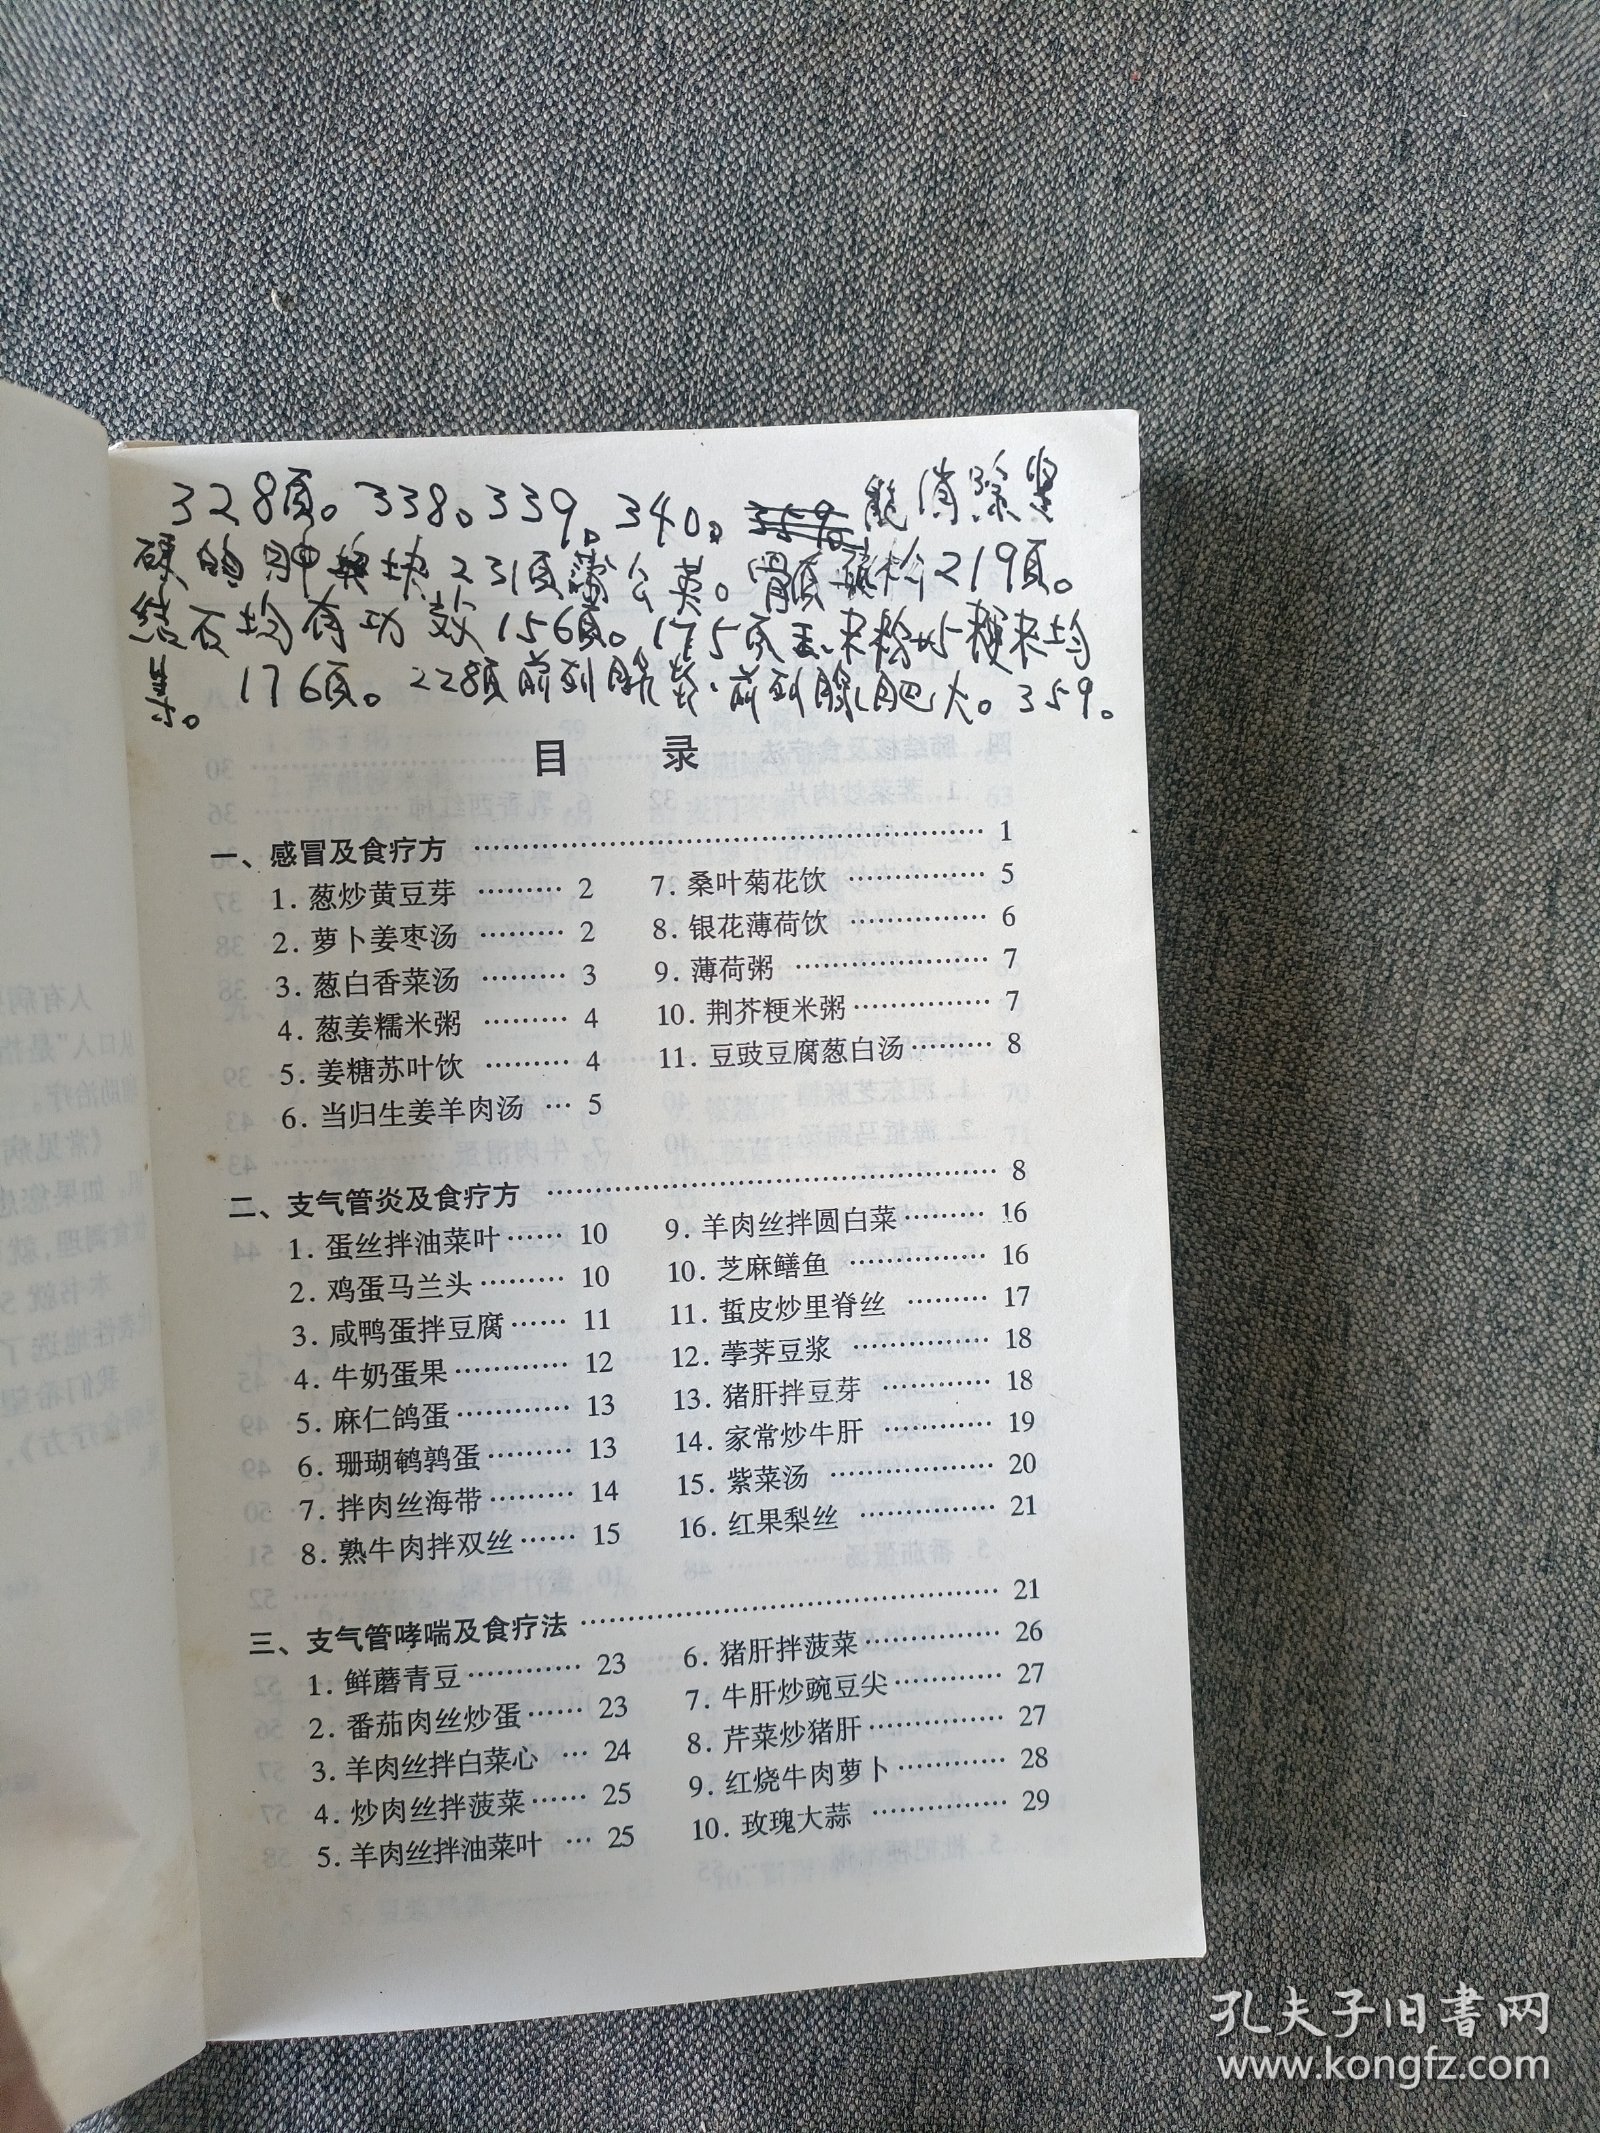 328页。338。339。340。能消除坚
硬的肿块231页蒲公英。219页。
结石均有功效156页。175页玉米粉与粳米均
等。176页。228页前列腺炎、前列腺肥大。359。
目 录
一、感冒及食疗方 …… 1
1. 葱炒黄豆芽 …… 2
2. 萝卜姜枣汤 …… 2
3. 葱白香菜汤 …… 3
4. 葱姜糯米粥 …… 4
5. 姜糖苏叶饮 …… 4
6. 当归生姜羊肉汤 … 5
7. 桑叶菊花饮 …… 5
8. 银花薄荷饮 …… 6
9. 薄荷粥 …… 7
10. 荆芥粳米粥 …… 7
11. 豆豉豆腐葱白汤 …… 8
二、支气管炎及食疗方 …… 8
1. 蛋丝拌油菜叶 …… 10
2. 鸡蛋马兰头 …… 10
3. 咸鸭蛋拌豆腐 …… 11
4. 牛奶蛋果 …… 12
5. 麻仁鸽蛋 …… 13
6. 珊瑚鹌鹑蛋 …… 13
7. 拌肉丝海带 …… 14
8. 熟牛肉拌双丝 …… 15
9. 羊肉丝拌圆白菜 …… 16
10. 芝麻鳝鱼 …… 16
11. 蜇皮炒里脊丝 …… 17
12. 荸荠豆浆 …… 18
13. 猪肝拌豆芽 …… 18
14. 家常炒牛肝 …… 19
15. 紫菜汤 …… 20
16. 红果梨丝 …… 21
三、支气管哮喘及食疗法 …… 21
1. 鲜蘑青豆 …… 23
2. 番茄肉丝炒蛋 …… 23
3. 羊肉丝拌白菜心 … 24
4. 炒肉丝拌菠菜 …… 25
5. 羊肉丝拌油菜叶 … 25
6. 猪肝拌菠菜 …… 26
7. 牛肝炒豌豆尖 …… 27
8. 芹菜炒猪肝 …… 27
9. 红烧牛肉萝卜 …… 28
10. 玫瑰大蒜 …… 29
人有病
从口入"是指
辅助治疗。
《常见病
孔夫子旧書网
www.kongfz.com